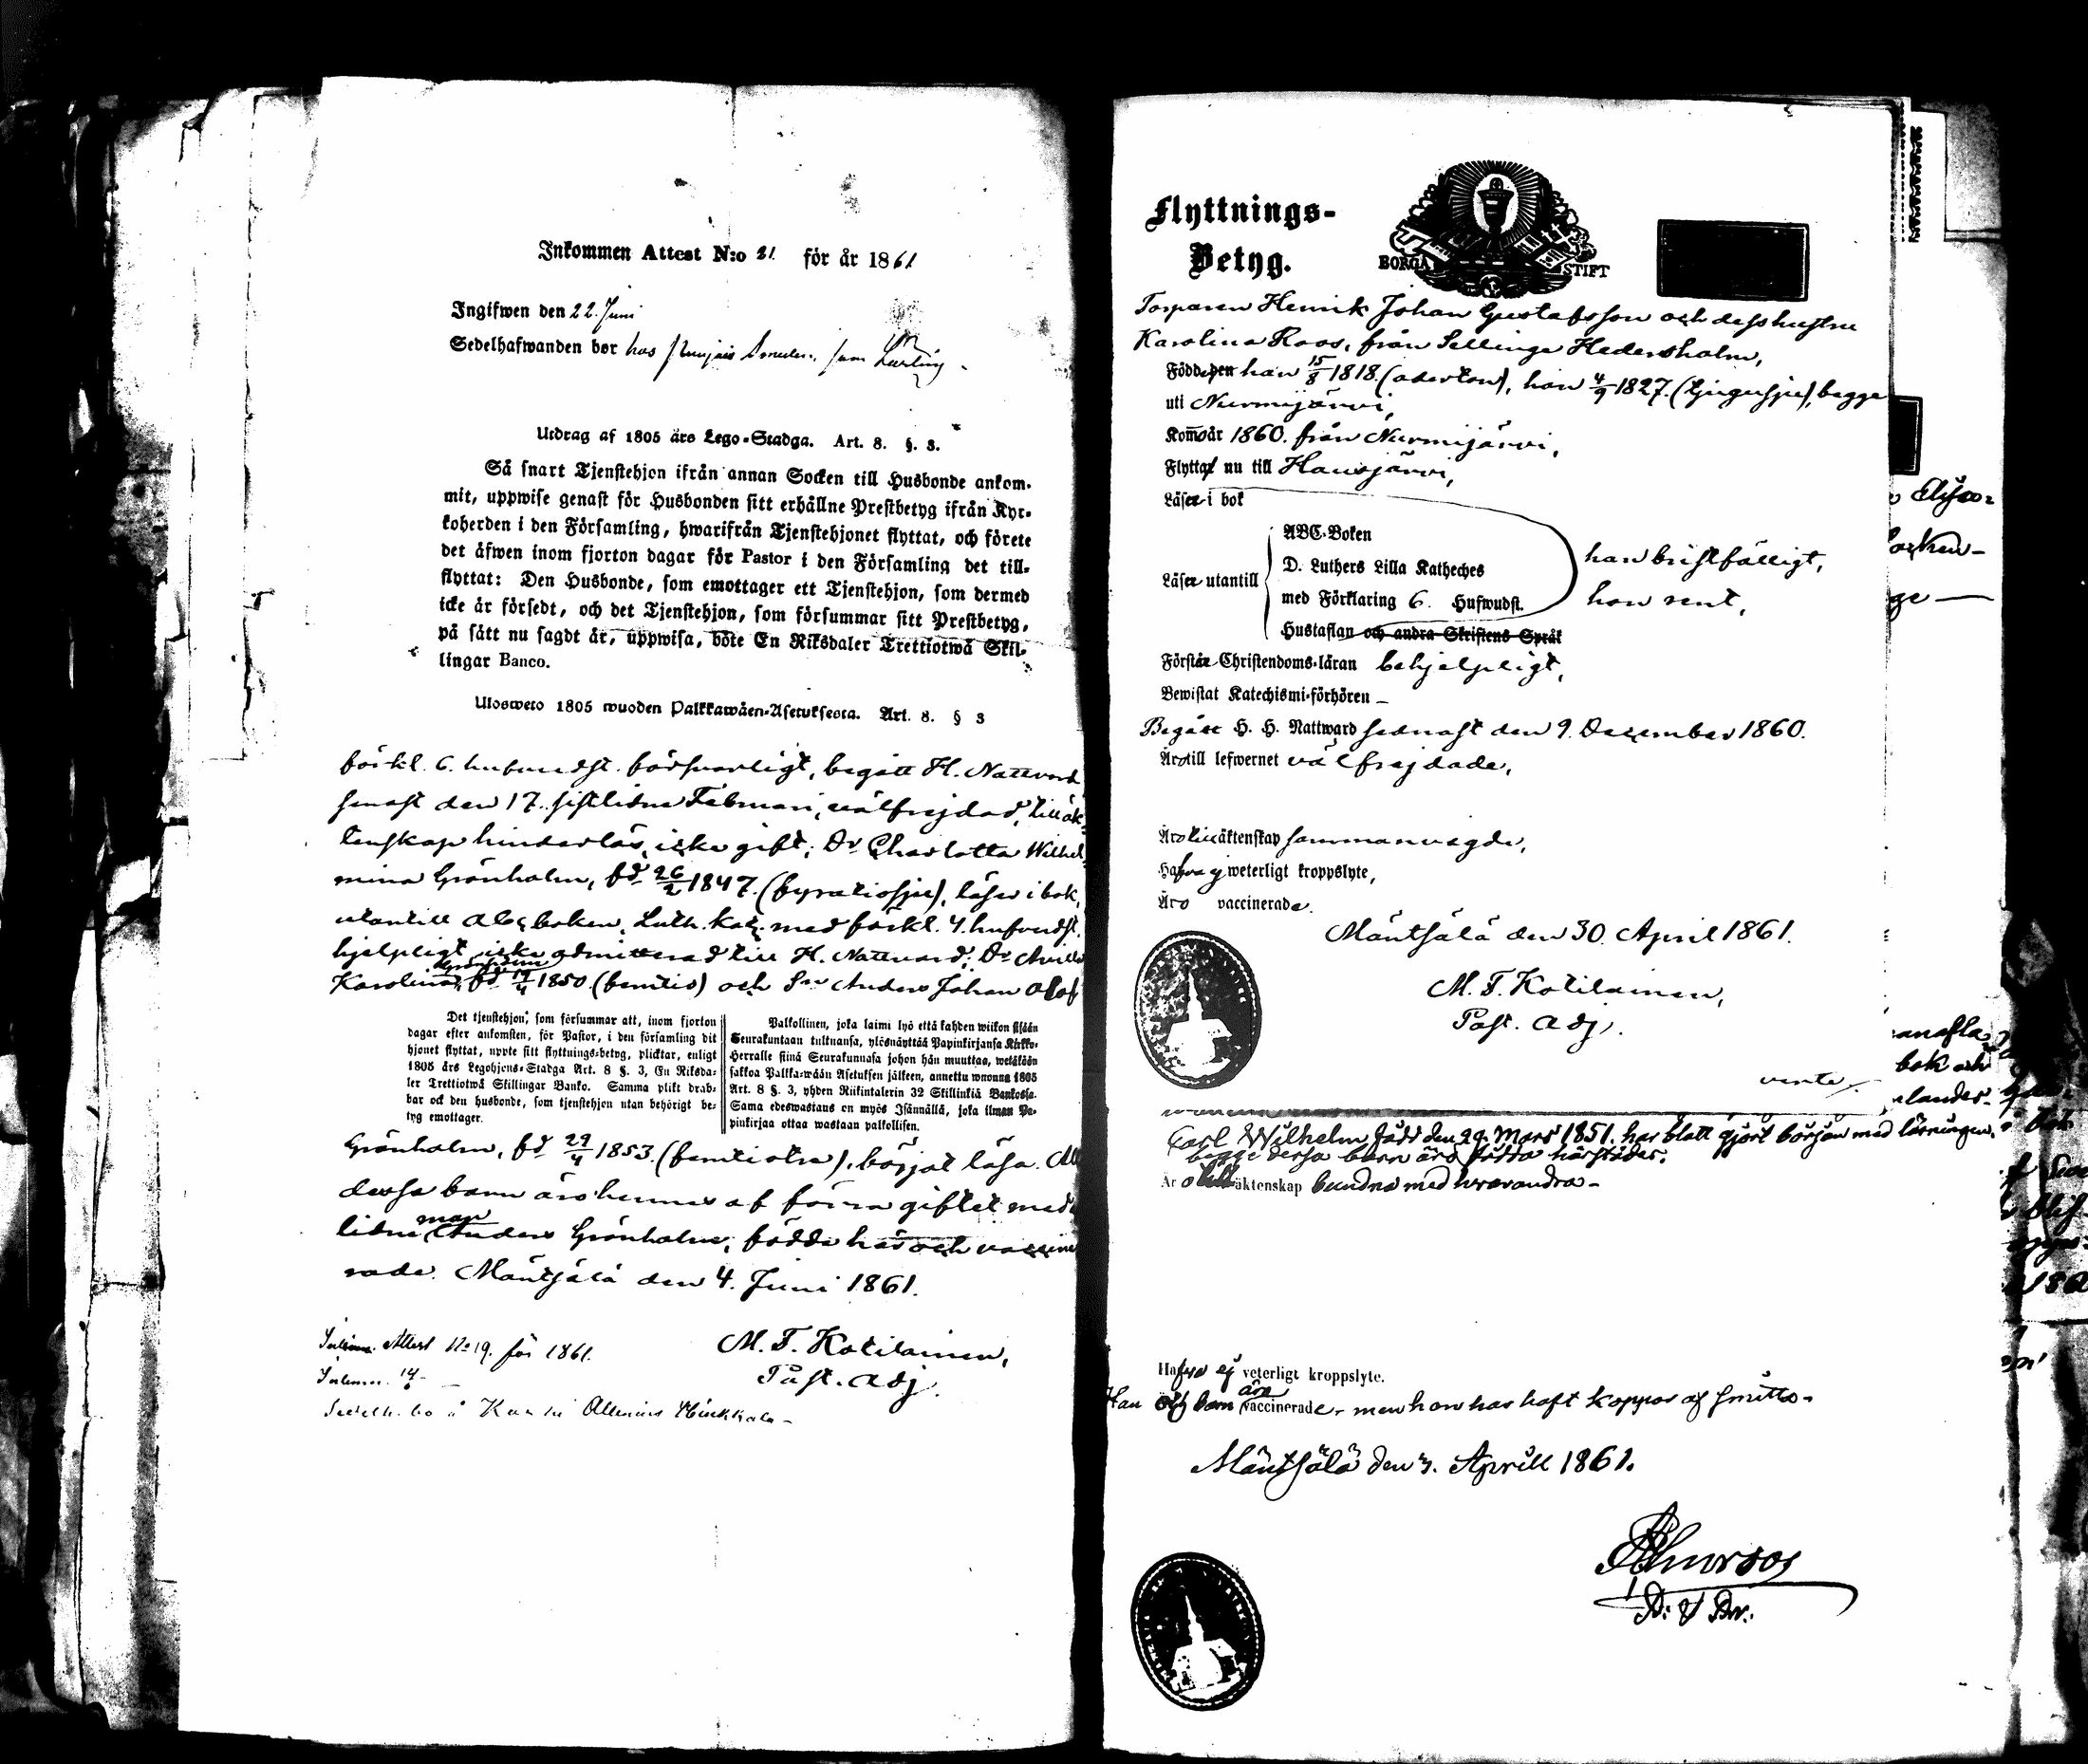 Inkommen Attest N:o 21 för år 1861
Ingifwen den 22. Juni
Sedelhafwanden bor hos
Utdrag af 1805 års Lego-Stadga. Art. 8. §. 3.
Så snart Tjenstehjon ifrån annan Socken till Husbonde ankom-
mit, uppwise genast för Husbonden sitt erhållne Prestbetyg ifrån Kyr-
koherden i den Församling, hwarifrån Tjenstehjonet flyttat, och förete
det äfwen inom fjorton dagar för Pastor i den Församling det till-
flyttat: Den Husbonde, som emottager ett Tjenstehjon, som dermed
icke är försedt, och det Tjenstehjon, som försummar sitt Prestbetyg,
på sätt nu sagdt är, uppwisa, böte En Riksdaler Trettiotwå Skil-
lingar Banco.
Ulosweto 1805 wuoden Palkkawäen-Asetuksesta. Art. 8. § 3
förkl. 6. hufvudst. försvarligt, begått H. Nattvard
senast den 17. sistlidne Februari, välfrejdad, till äk-
tenskap hinderlös, icke gift; Dr Charlotta Wilhel-
mina Grönholm, fd 26/2 1847. (fyratiosju), läser i bok,
utantill abc boken, Luth. kat. med förkl. 4. hufvudst.
hjelpligt, icke admitterad till H. Nattvard; Dr
Karolina Grönholm, fd 1850. (femtio) och Sn Anders Johan
Det tjenstehjon, som försummar att, inom fjorton
dagar efter ankomsten, för Pastor, i den församling dit
hjonet flyttat, uppte sitt flyttnings-betyg, plicktar, enligt
1805 års Legohjons-Stadga Art. 8 §. 3, En Riksda-
ler Trettiotwå Skillingar Banko. Samma plikt drab-
bar ock den husbonde, som tjenstehjon utan behörigt be-
tyg emottager.
Palkollinen, joka laimi lyö että kahden wiikon sisään
Seurakuntaan tultuansa, ylösnäyttää Papinkirjansa Kirkko-
Herralle siinä Seurakunnasa johon hän muuttaa, wetäkään
sakkoa Palkka-wään Asetuksen jälkeen, annettu wuonna 1805
Art. 8 §. 3, yhden Riikintalerin 32 Skillinkiä Bankossa.
Sama edeswastaus on myös Isännällä, joka ilman Pa-
pinkirjaa ottaa wastaan palkollisen.
Grönholm, fd 29/4 1853. (femtiotre), börjat läsa.
dessa barn äro hennes af förra giftet med
lidne man Anders Grönholm, födde här och vaccine
rade. Mäntsälä den 4. Juni 1861.
M. F. Kotilainen,
Past. adj.
Inkom. Attest No 19. för 1861.
Flyttnings-
Betyg.
BORGÅ STIFT
Torparen Henrik Johan Gustafsson och dess hustru
Karolina Roos, från Sellinge Hedersholm,
Född den han 15/8 1818. (aderton), hon 4/9 1827. (tjugusju), begge
uti Nurmijärvi,
Kom år 1860. från Nurmijärvi,
Flyttar nu till Hausjärvi,
Läser i bok
Läser utantill
ABC-Boken
D. Luthers Lilla Katheches
med Förklaring 6. Hufwudst.
Hustaflan och andra Skriftens Språk
han bristfälligt,
hon rent,
Förstår Christendoms-läran behjelpligt,
Bewistat Katechismi-förhören –
Begått H. H. Nattward sednast den 9. December 1860.
Äro till lefwernet välfrejdade,
Äro till äktenskap sammanvigde,
Hafva ej weterligt kroppslyte,
Äro vaccinerade.
Mäntsälä den 30. April 1861.
M. F. Kotilainen,
Past. adj.
Carl Wilhelm född den 29. Mars 1851. har blott gjort början med läsningen.
begge dessa barn äro födda härstädes.
Är o till äktenskap bundna med hvarandra –
Hafva ej veterligt kroppslyte.
Han och barn äro vaccinerade – men hon har haft koppor af smitta –
Mäntsälä den 3. Aprill 1861.